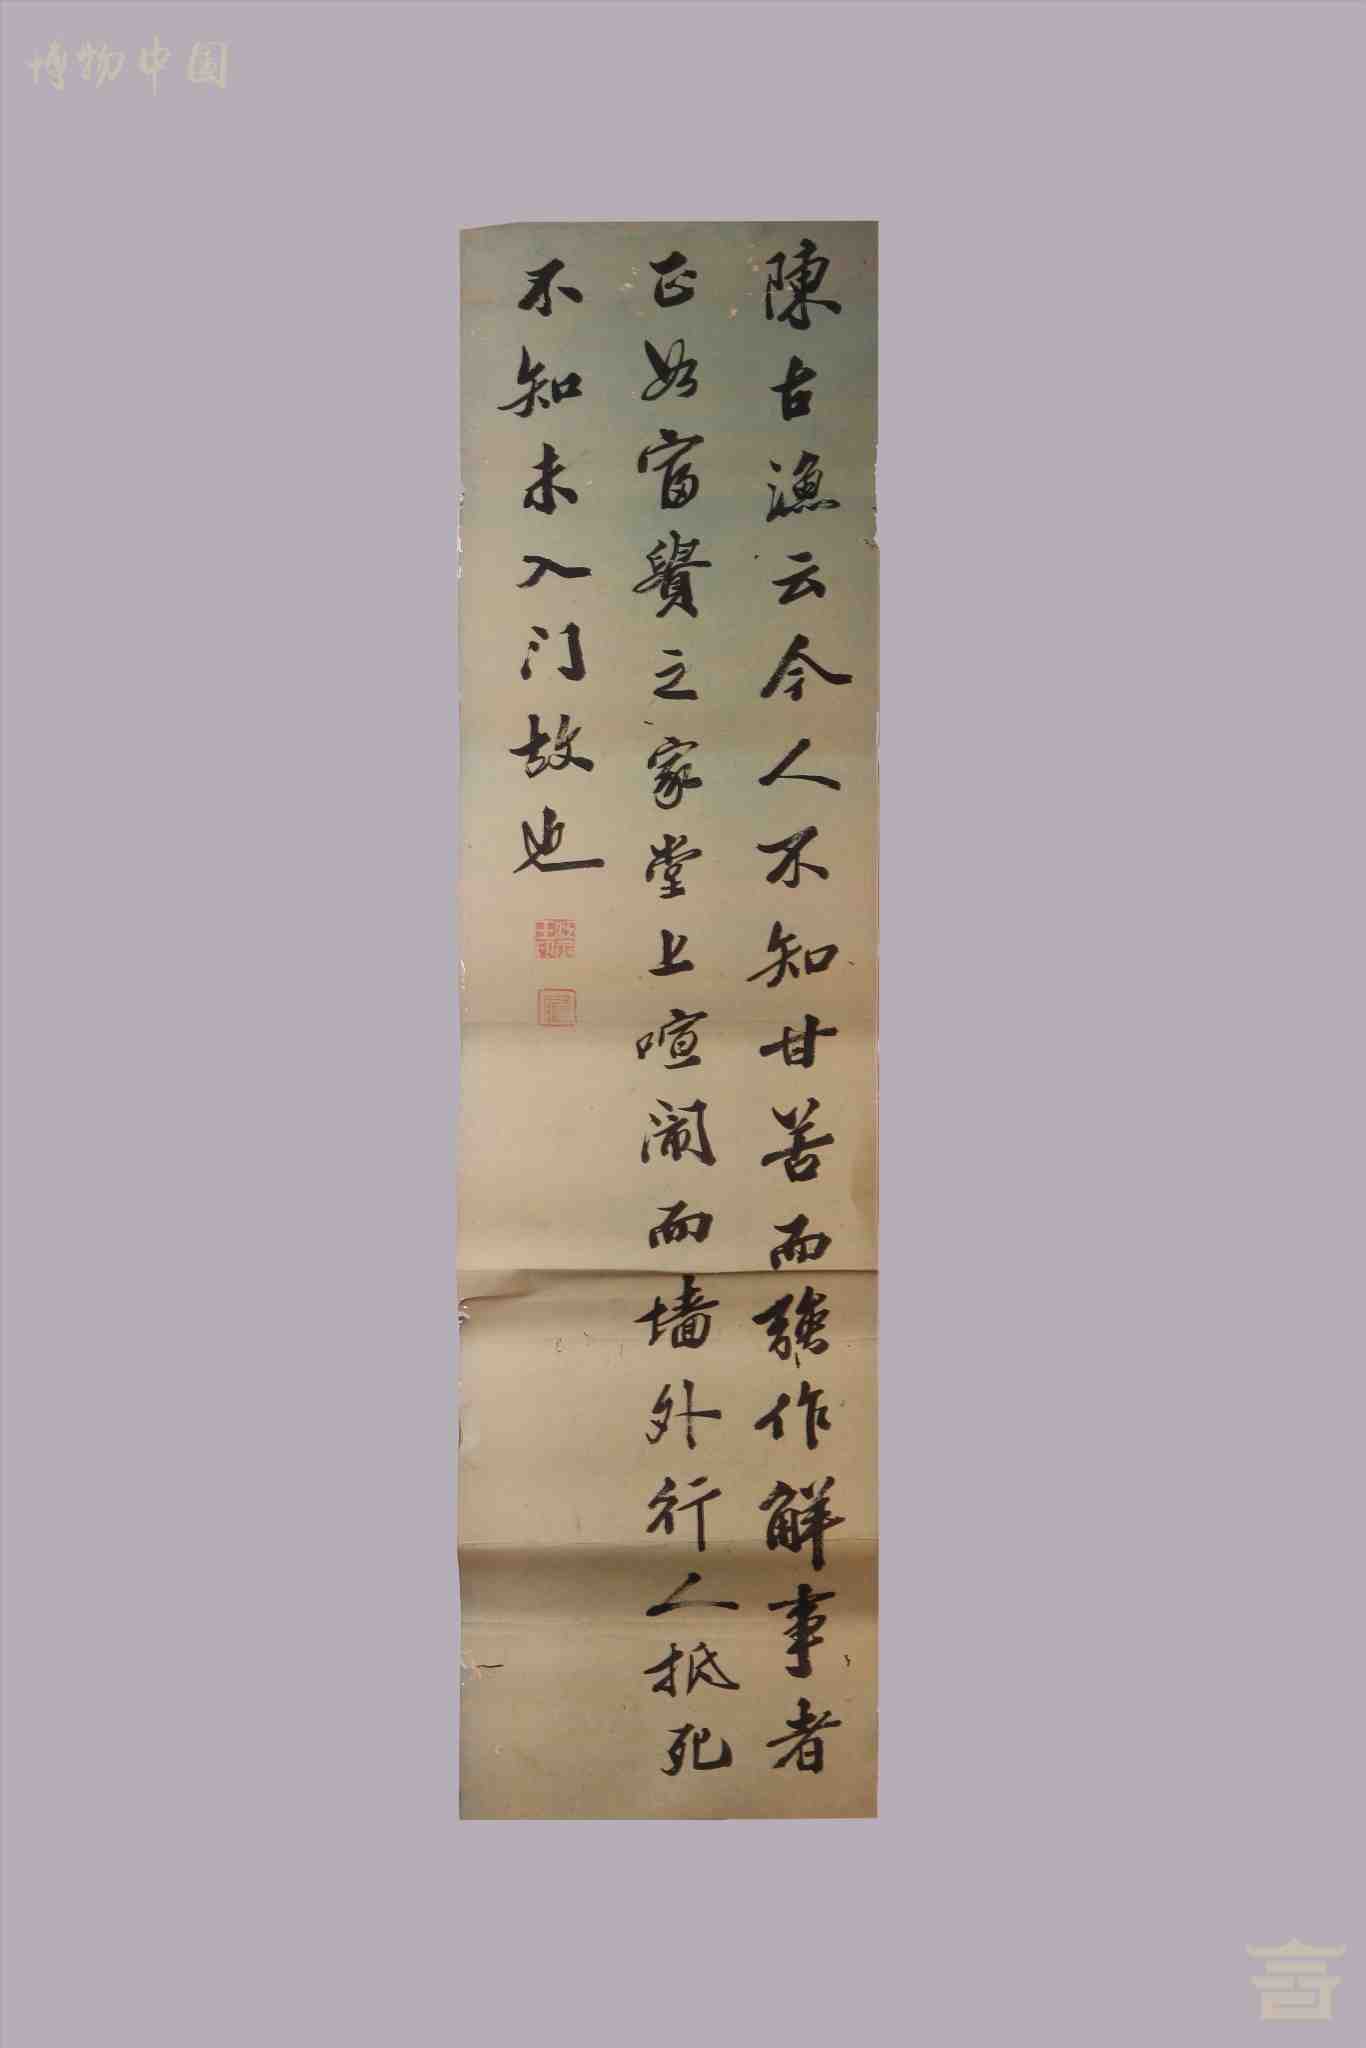 博物中国
陳古漁云今人不知甘苦而強作解事者
正如富貴之家堂上喧闹而墙外行人抵死
不知未入门故也